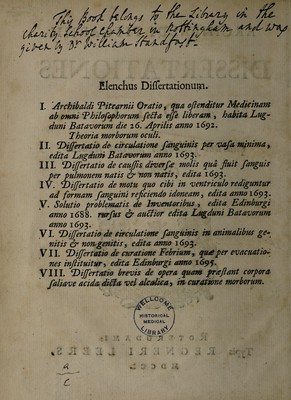 This Book belongs to the Library in the
Charity School Chamber in Nottingham and was
given by Dr William Standfast.
Elenchus Dissertationum.
I. Archibaldi Pitcarnii Oratio, qua ostenditur Medicinam
ab omni Philosophorum secta esse liberam, habita Lug-
duni Batavorum die 26. Aprilis anno 1692.
Theoria morborum oculi.
II. Dissertatio de circulatione sanguinis per vasa minima,
edita Lugduni Batavorum anno 1693.
III. Dissertatio de caussis diversæ molis quâ fluit sanguis
per pulmonem natis & non natis, edita 1693.
IV. Dissertatio de motu quo cibi in ventriculo rediguntur
ad formam sanguini reficiendo idoneam, edita anno 1693.
V. Solutio problematis de Inventoribus, edita Edinburgi
anno 1688. rursus & auctior edita Lugduni Batavorum
anno 1693.
VI. Dissertatio de circulatione sanguinis in animalibus ge-
nitis & non genitis, edita anno 1693.
VII. Dissertatio de curatione Febrium, quæ per evacuatio-
nes instituitur, edita Edinburgi anno 1695.
VIII. Dissertatio brevis de opera quam præstant corpora
salia vel acida dicta vel alcalica, in curatione morborum.
WELLCOME
HISTORICAL
MEDICAL
LIBRARY